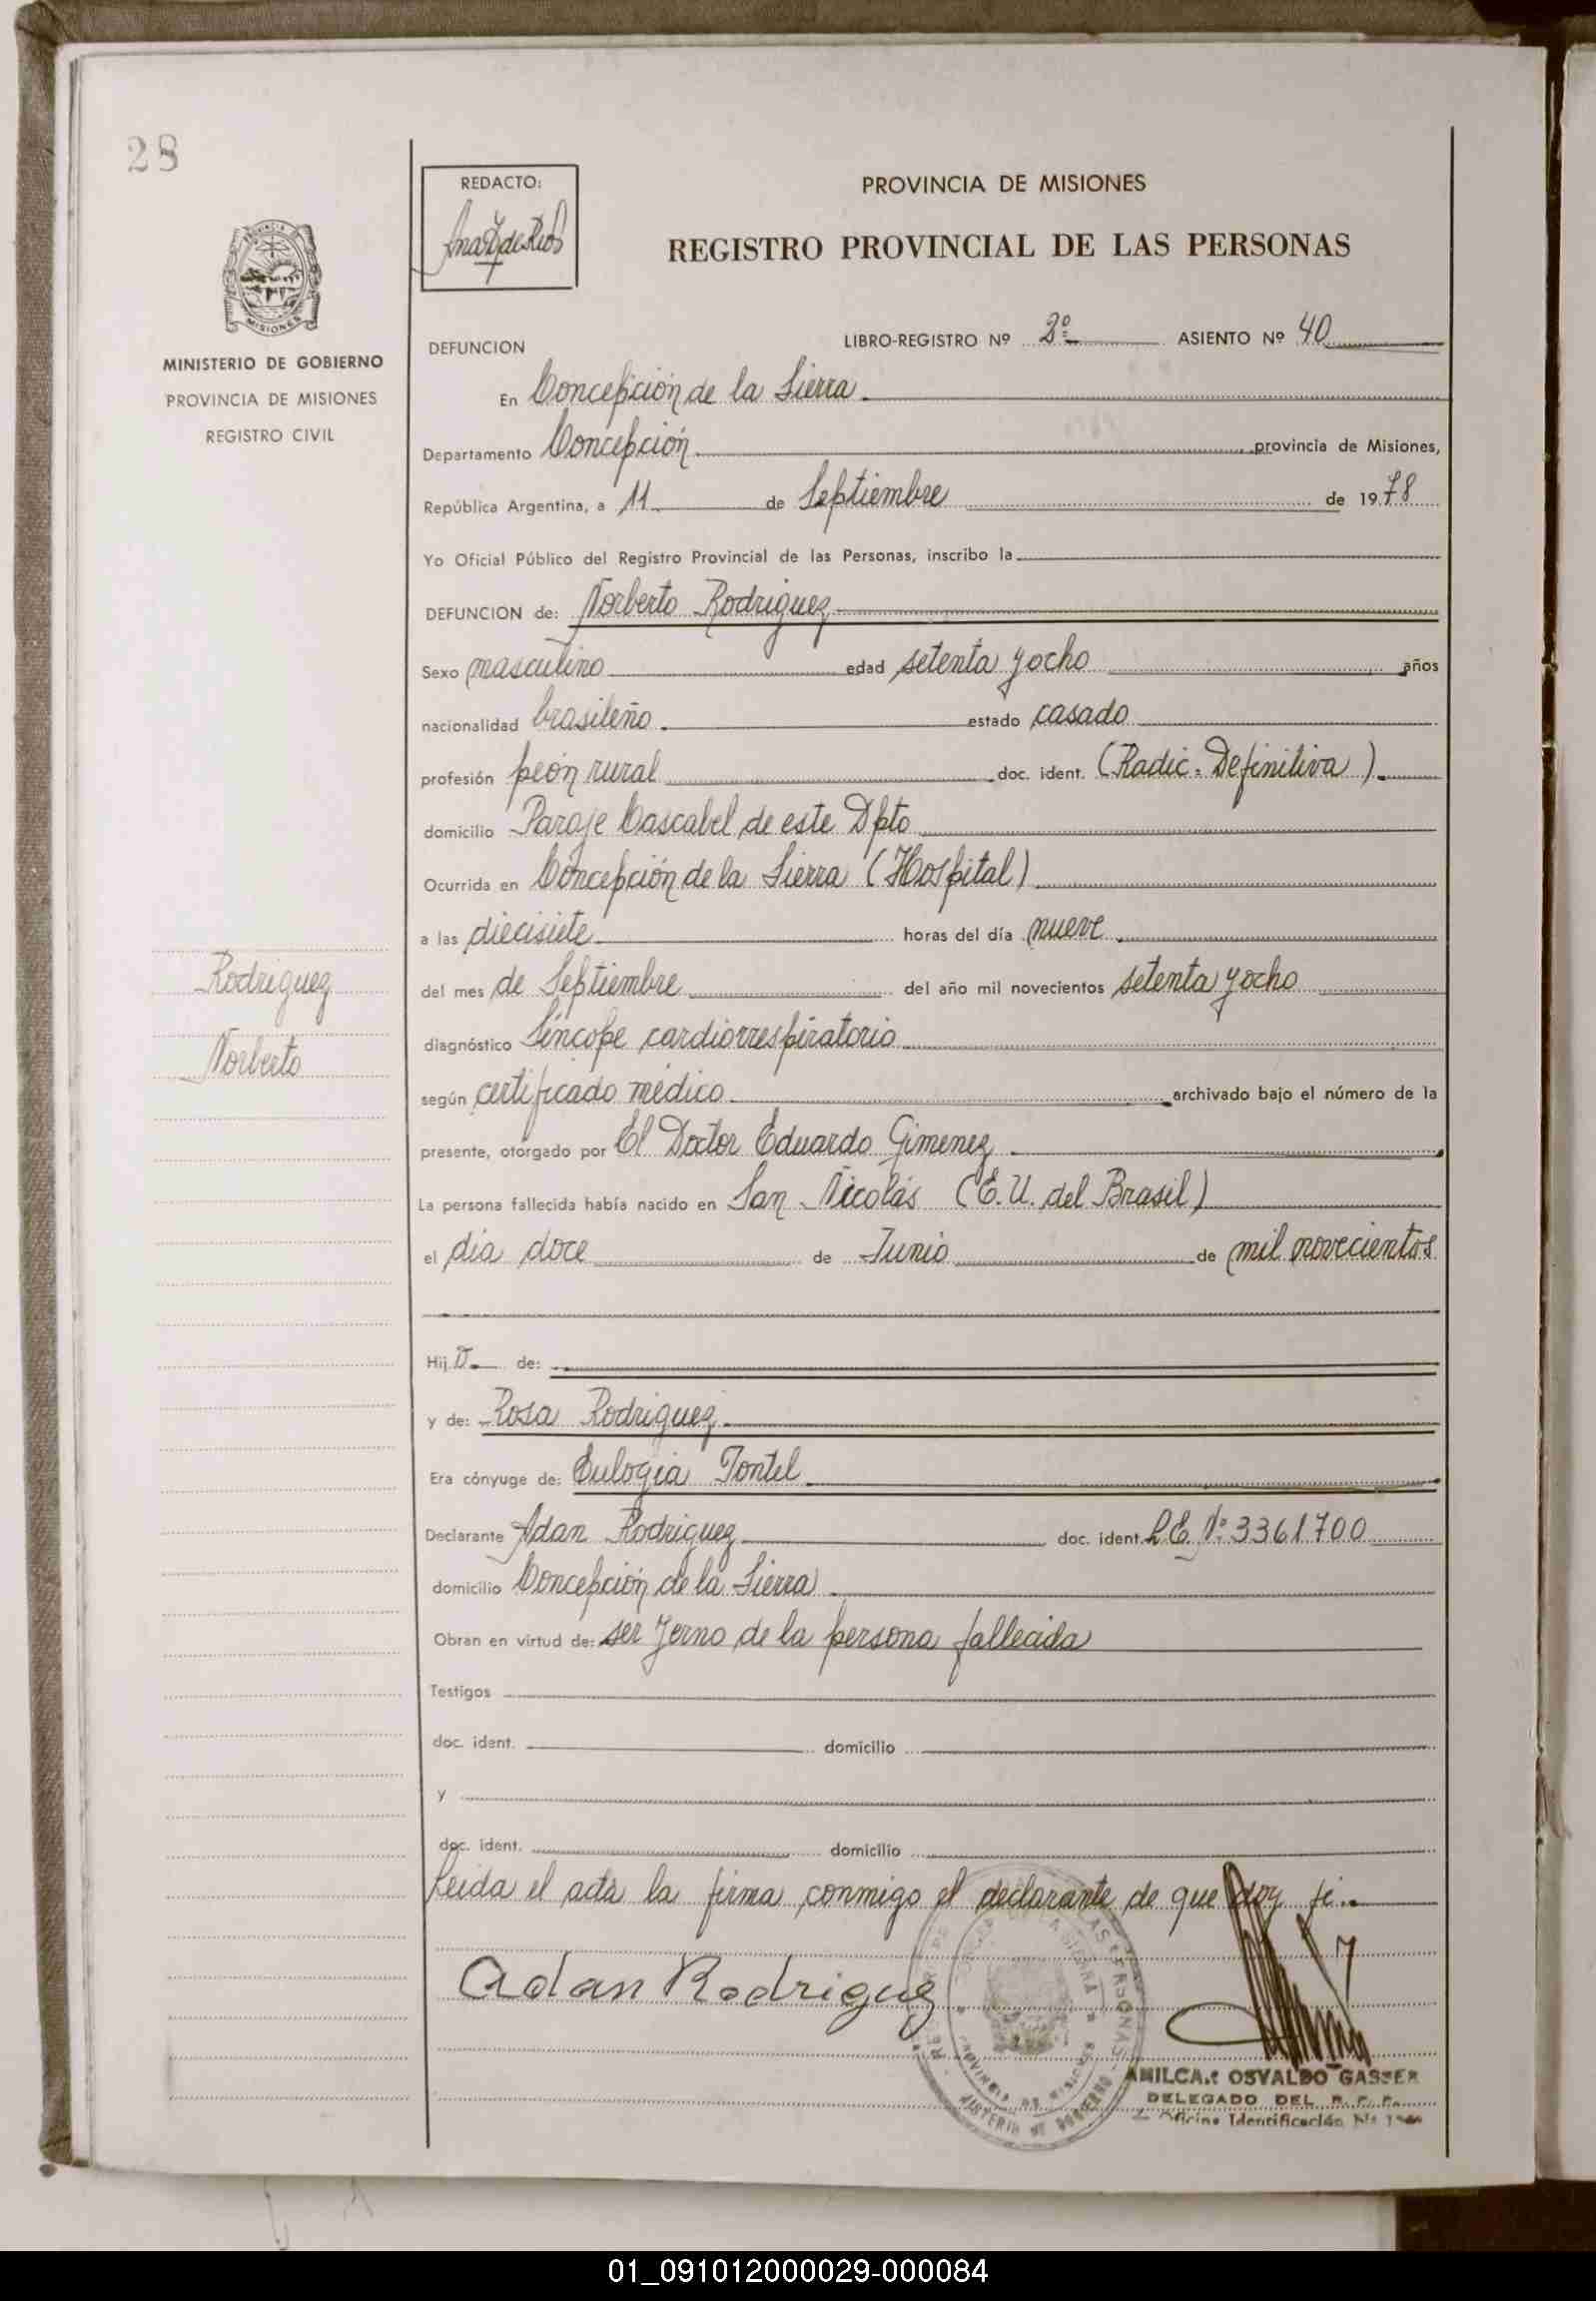 28
REDACTO:
PROVINCIA DE MISIONES
REGISTRO PROVINCIAL DE LAS PERSONAS
MISIONES
MINISTERIO DE GOBIERNO
PROVINCIA DE MISIONES
REGISTRO CIVIL
DEFUNCION LIBRO-REGISTRO Nº 2º ASIENTO Nº 40
En Concepción de la Sierra
Departamento Concepción provincia de Misiones,
República Argentina, a 11 de Septiembre de 1978
Yo Oficial Público del Registro Provincial de las Personas, inscribo la
DEFUNCION de: Norberto Rodriguez
Sexo masculino edad setenta y ocho años
nacionalidad brasileño estado casado
profesión peón rural doc. ident. (Radic. Definitiva)
domicilio Paraje Cascabel de este Dpto
Ocurrida en Concepción de la Sierra (Hospital)
a las diecisiete horas del día nueve
Rodriguez
del mes de Septiembre del año mil novecientos setenta y ocho
Norberto
diagnóstico Síncope cardiorrespiratorio
según certificado médico archivado bajo el número de la
presente, otorgado por El Doctor Eduardo Gimenez
La persona fallecida había nacido en San Nicolás (E.U. del Brasil)
el dia doce de Junio de mil novecientos
Hij o de:
y de: Rosa Rodriguez
Era cónyuge de: Eulogia Tontel
Declarante Adan Rodriguez doc. ident. L.E. Nº 3361700
domicilio Concepción de la Sierra
Obran en virtud de: ser yerno de la persona fallecida
Testigos
doc. ident. domicilio
y
doc. ident. domicilio
Leida el acta la firma conmigo el declarante de que doy fé.
Adan Rodriguez
AMILCAR OSVALDO GASSER
DELEGADO DEL R. P. P.
Oficina Identificación Nº
01_091012000029-000084